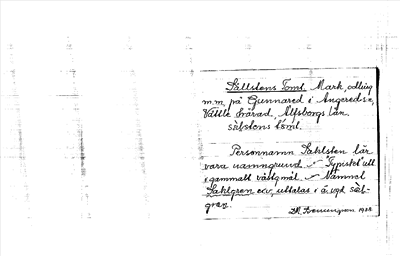 Sällstens Tomt. Mark, odling
m.m. på Gunnared i Angereds sn,
Vättle härad, Älfsborgs län.
säbstens tomt.
Personnamn Sahlsten lär
vara namngrund. Typiskt utt
i gammalt västgmål. Namnet
Sahlgren o.s.v. uttalas i ä. vgd. säb-
gren.